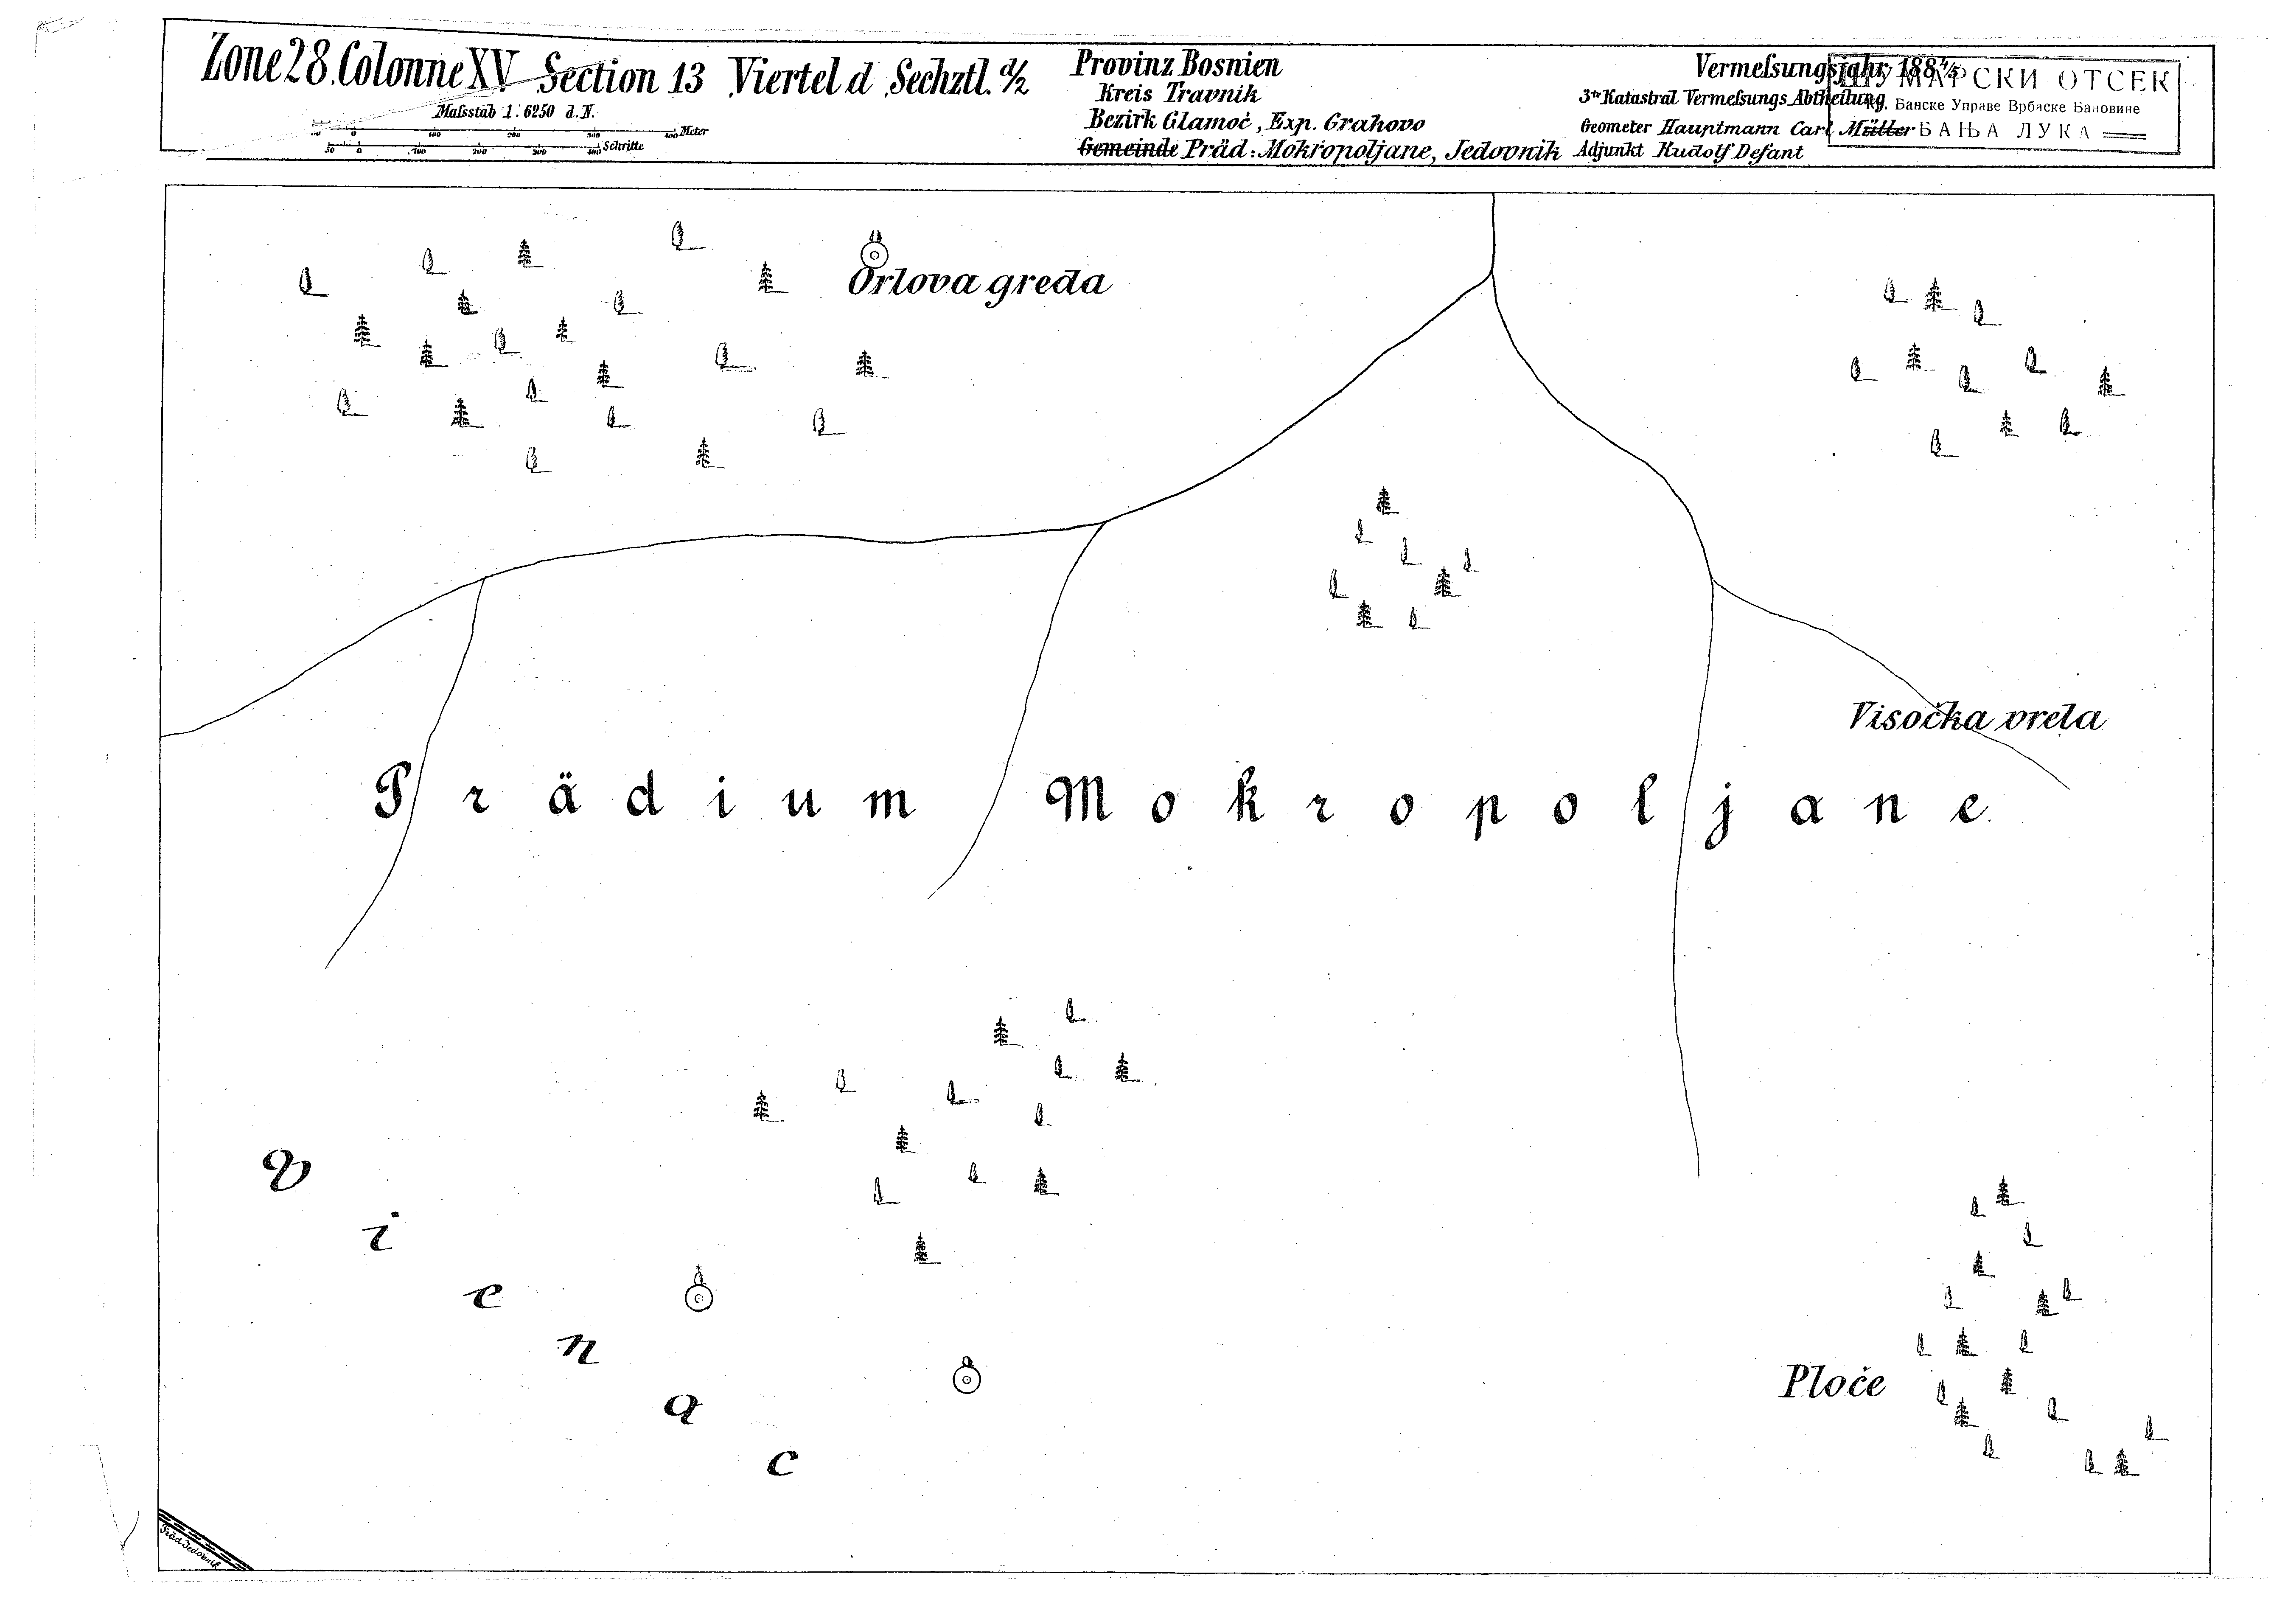 Zone 28. Colonne XV Section 13 Viertel d Sechztl. d/2
Maſsstab 1:6250 d. N.
50 0 100 200 300 400 Meter
50 0 100 200 300 400 Schritte
Provinz Bosnien
Kreis Travnik
Bezirk Glamoč, Exp. Grahovo
Gemeinde Präd: Mokropoljane, Jedovnik
Vermeſsungsjahr 1884/5
3te Katastral Vermeſsungs Abtheilung
Geometer Hauptmann Carl Müller
Adjunkt Rudolf Defant
ШУМАРСКИ ОТСЕК
Банске Управе Врбаске Бановине
БАЊА ЛУКА
Orlova greda
Visočka vrela
Prädium Mokropoljane
Vienac
Ploče
Präd Jedovnik